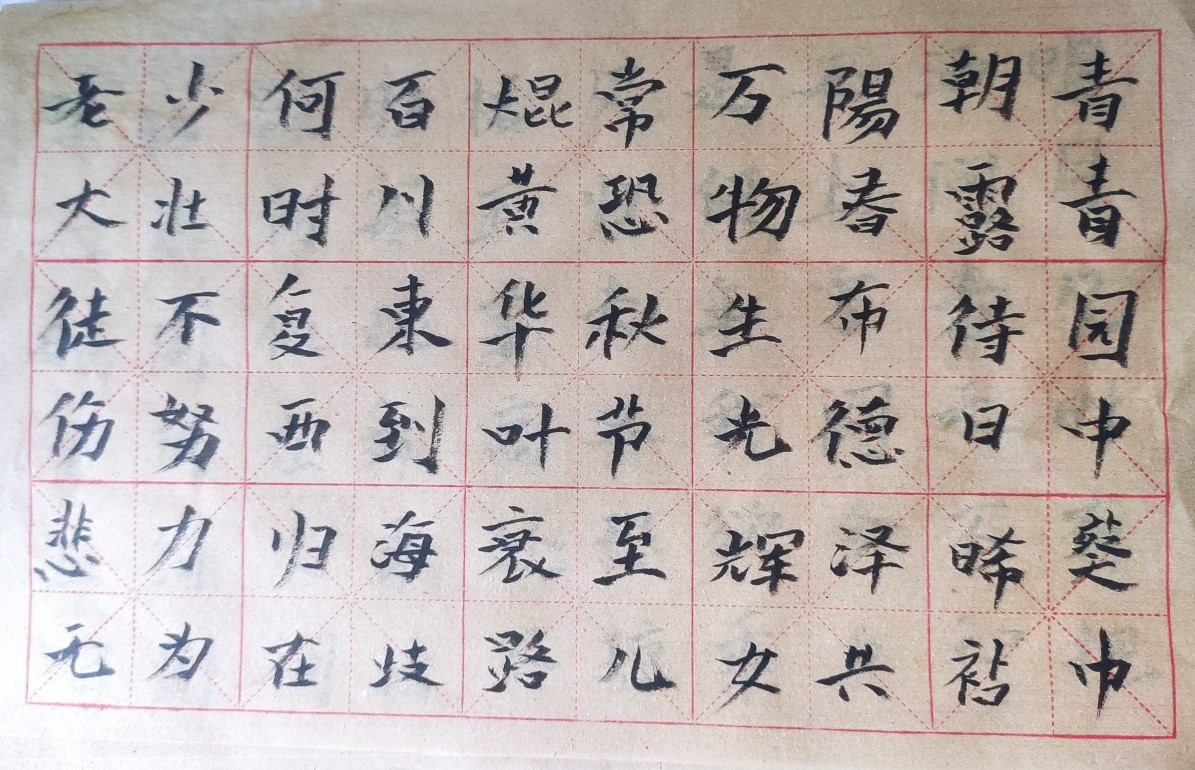 青青园中葵巾
朝露待日晞
陽春布德泽共
万物生光辉女
常恐秋节至儿
焜黄华叶衰路
百川東到海歧
何时复西归在
少壮不努力为
老大徒伤悲无